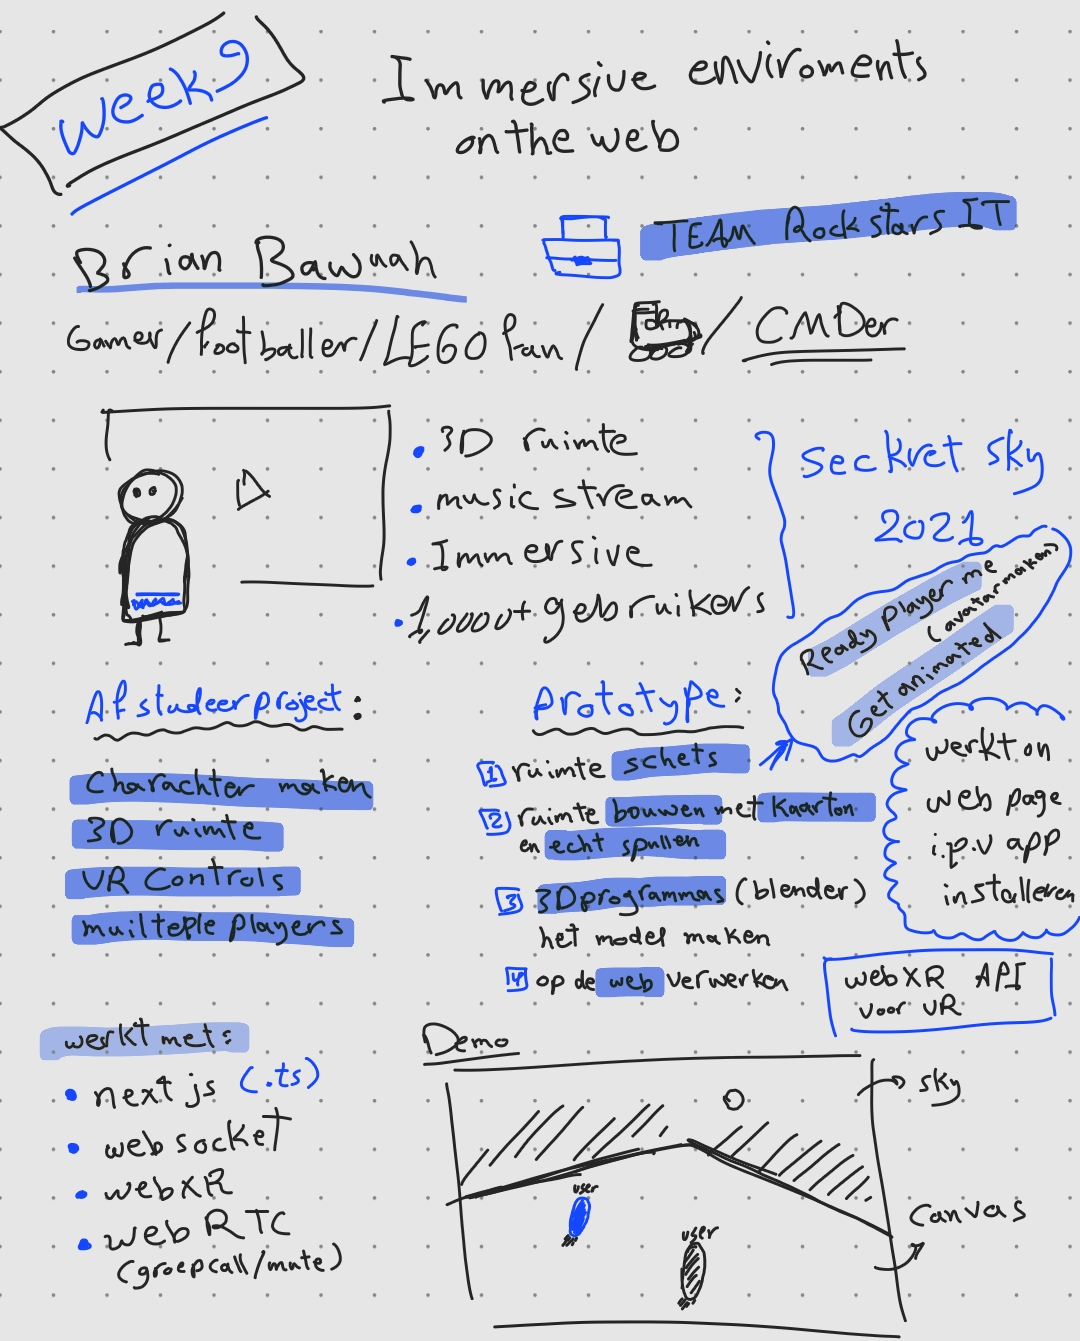 week 9
Immersive enviroments
on the web
TEAM Rockstars IT
Brian Bawuah
Gamer/footballer/LEGO fan/ / CMDer
• 3D ruimte
• music stream
• Immersive
• 10000+ gebruikers
Seckret sky
2021
Ready player me
(avatar maken)
Get animated
Afstudeerproject:
Charachter maken
3D ruimte
VR Controls
muilteple players
Prototype:
1 ruimte schets
2 ruimte bouwen met kaarton
en echt spullen
3 3D programmas (blender)
het model maken
4 op de web verwerken
werkt on
web page
i.p.v app
installeren
webXR API
voor VR
werkt met:
• next js (.ts)
• websocket
• webXR
• web RTC
(groepcall/mute)
Demo
sky
user
user
Canvas